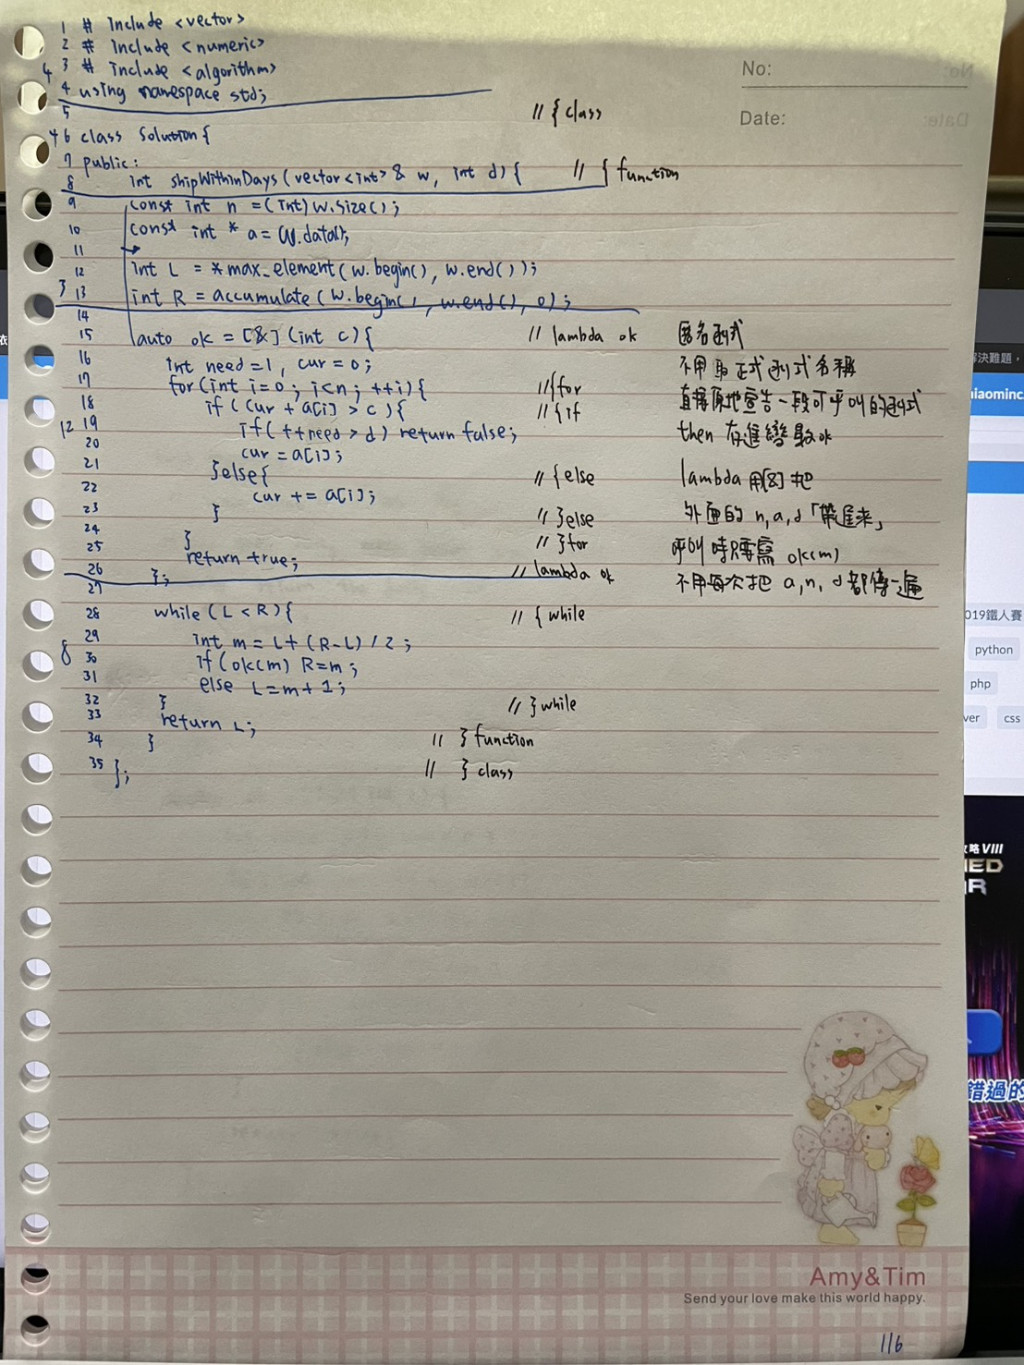 No:
Date:
1 # Include <vector>
2 # Include <numeric>
4 3 # include <algorithm>
4 using namespace std;
5 // { class
4 6 class Solution {
7 public:
8 int shipWithinDays(vector<int> & w, int d) { // { function
9 const int n = (int) w.size();
10 const int * a = w.data();
11
12 int L = *max_element(w.begin(), w.end());
3 13 int R = accumulate(w.begin(), w.end(), 0);
14
15 auto ok = [&](int c){ // lambda ok 匿名函式
16 int need=1, cur = 0; 不用取正式函式名稱
17 for(int i=0; i<n; ++i){ //{for 直接原地宣告一段可呼叫的函式
18 if (cur + a[i] > c){ //{if
12 19 if(++need > d) return false; then 存進變數ok
20 cur = a[i];
21 }else{ // {else lambda 用[&]把
22 cur += a[i];
23 } // }else 外面的 n,a,d「帶進來」
24 } // }for 呼叫時只要寫 ok(m)
25 return true;
26 }; // lambda ok 不用每次把 a,n,d都傳一遍
27
28 while (L < R){ // { while
29 int m = L+(R-L)/2;
8 30 if(ok(m) R=m;
31 else L=m+1;
32 } // }while
33 return L;
34 } // } function
35 }; // } class
019鐵人賽
python
php
ver
css
略VIII
錯過的
Amy&Tim
Send your love make this world happy.
116